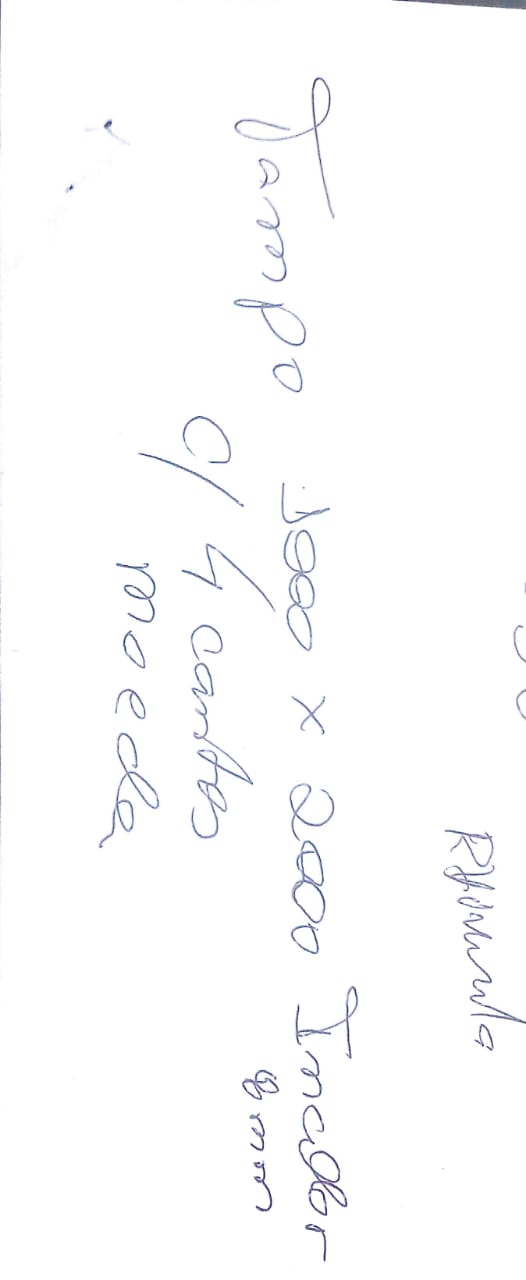 Tampo 1000 x 2000 Incolor
8mm
c/ 4 cantos
moeda